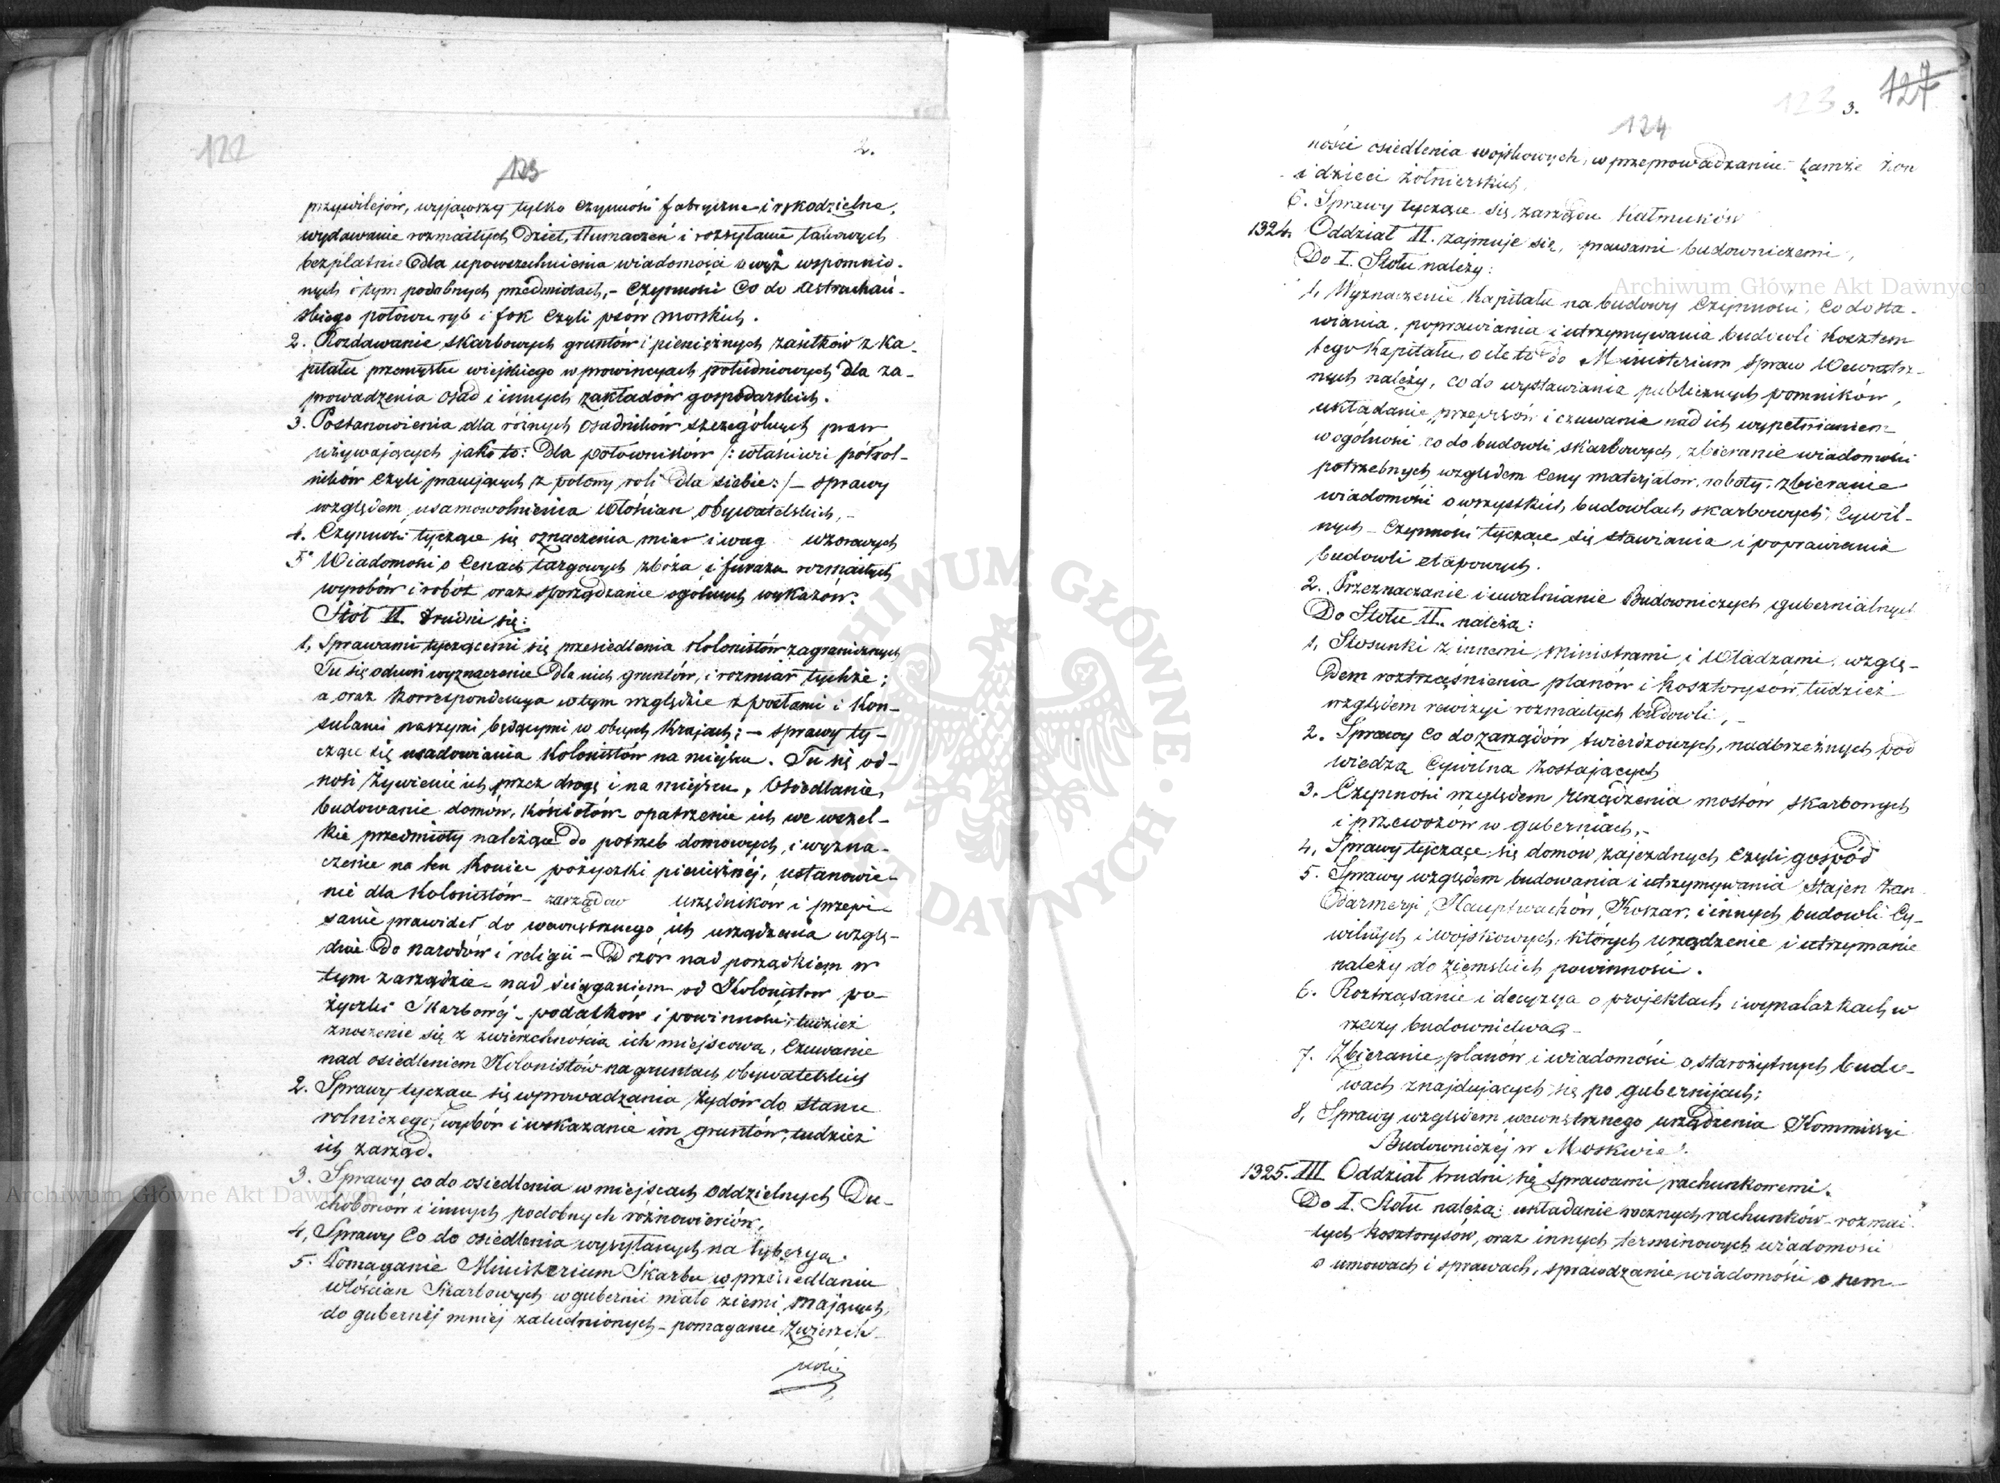 122
2.
123
przywilejów, wyjąwszy tylko czynności fabryczne i rękodzielne,
wydawanie rozmaitych Dzieł, tłumaczeń i rozsyłanie takowych
bezpłatnie dla upowszechnienia wiadomości o wyż wspomnio-
nych i tym podobnych przedmiotach, – Czynności co do Astrachań-
skiego połowu ryb i fok czyli psów morskich.
2. Rozdawanie skarbowych gruntów i pieniężnych zasiłków z ka-
pitału przemysłu wiejskiego w prowincyach południowych dla za-
prowadzenia osad i innych zakładów gospodarskich.
3. Postanowienia dla różnych osadników szczególnych praw
używających jako to: Dla połowników /: właściwie półrol-
ników czyli pracujących z połowy roli dla siebie :/ – sprawy
względem usamowolnienia włościan obywatelskich, –
4. Czynności tyczące się oznaczenia miar i wag wzorowych
5. Wiadomości o cenach targowych zboża i furażu rozmaitych
wyrobów i robót oraz sporządzanie ogólnych wykazów.
Stół II. trudni się:
1, Sprawami tyczącemi się przesiedlenia Kolonistów zagranicznych
Tu się odnosi wyznaczenie dla nich gruntów, i rozmiar tychże;
a oraz korrespondencya w tym względzie z posłami i Kon-
sulami naszymi będącymi w obcych krajach; – sprawy ty-
czące się usadowiania Kolonistów na miejscu. Tu się od-
nosi żywienie ich przez drogę i na miejscu, Osiedlanie,
budowanie domów, kościołów opatrzenie ich we wszel-
kie przedmioty należące do potrzeb domowych, i wyzna-
czenie na ten koniec pożyczki pieniężnéj, ustanowie-
nie dla Kolonistów zarządów urzędników i przepi-
sanie prawideł do wewnętrznego ich urządzenia wzglę-
dnie do narodów i religii – Dozór nad porządkiem w
tym zarządzie – nad ściąganiem od Kolonistów po-
życzki Skarbowéj – podatków i powinności, tudzież
znoszenie się z zwierzchnością ich miejscową, Czuwanie
nad osiedleniem Kolonistów na gruntach obywatelskich
2. Sprawy tyczące się wprowadzania Żydów do stanu
rolniczego, wybór i wskazanie im gruntów, tudzież
ich zarząd.
3. Sprawy co do osiedlenia w miejscach oddzielnych Du-
choborców i innych podobnych różnowierców,
4, Sprawy co do osiedlenia wysyłanych na Syberyą.
5. Pomaganie Ministerium Skarbu w przesiedlaniu
włościan Skarbowych w gubernii mało ziemi mających,
do gubernéj mniéj zaludnionych – pomaganie Zwierzch-
ności
127
123 3.
124
ności osiedlenia wojskowych, w przeprowadzaniu tamże żon
i dzieci żołnierskich
6. Sprawy tyczące się zarządu Kałmuków
1324. Oddział II. zajmuje się, prawami budowniczemi,
Do I. Stołu należy:
1, Wyznaczenie kapitału na budowy Czynności, co do sta-
wiania, poprawiania i utrzymywania budowli kosztem
tego kapitału, o ile to do Ministerium Spraw Wewnętrz-
nych należy, co do wystawiania publicznych pomników,
układanie przepisów i czuwanie nad ich wypełnianiem
w ogólności co do budowli skarbowych, zbieranie wiadomości
potrzebnych względem ceny materjałów, roboty, zbieranie
wiadomości o wszystkich budowlach skarbowych, Cywil-
nych – Czynności tyczące się stawiania i poprawiania
budowli etapowych.
2. Przeznaczanie i uwalnianie Budowniczych gubernialnych
Do Stołu II. należą:
1, Stosunki z innemi Ministrami i Władzami, wzglę-
dem roztrząśnienia planów i kosztorysów, tudzież
względem rewizyi rozmaitych budowli, –
2. Sprawy co do zarządów twierdzowych, nadbrzeżnych pod
wiedzą Cywilna zostających
3. Czynności względem urządzenia mostów skarbowych
i przewozów w guberniach, –
4, Sprawy tyczące się domów zajezdnych czyli gospód
5. Sprawy względem budowania i utrzymywania Stajen Żan-
darmeryi, Hauptwachów, Koszar, i innych budowli Cy-
wilnych i wojskowych, których urządzenie i utrzymanie
należy do ziemskich powinności.
6. Roztrząsanie i decyzya o projektach i wynalazkach w
rzeczy budownictwa, –
7. Zbieranie planów i wiadomości o starożytnych budo-
wach znajdujących się po gubernijach;
8, Sprawy względem wewnętrznego urządzenia Kommissyi
Budowniczéj w Moskwie.
1325. III Oddział trudni się sprawami rachunkowemi.
Do I. Stołu należą: układanie rocznych rachunków – rozmai-
tych kosztorysów, oraz innych terminowych wiadomości
o umowach i sprawach, sprawdzanie wiadomości o sum-
Archiwum Główne Akt Dawnych
Archiwum Główne Akt Dawnych
ARCHIWUM GŁÓWNE AKT DAWNYCH